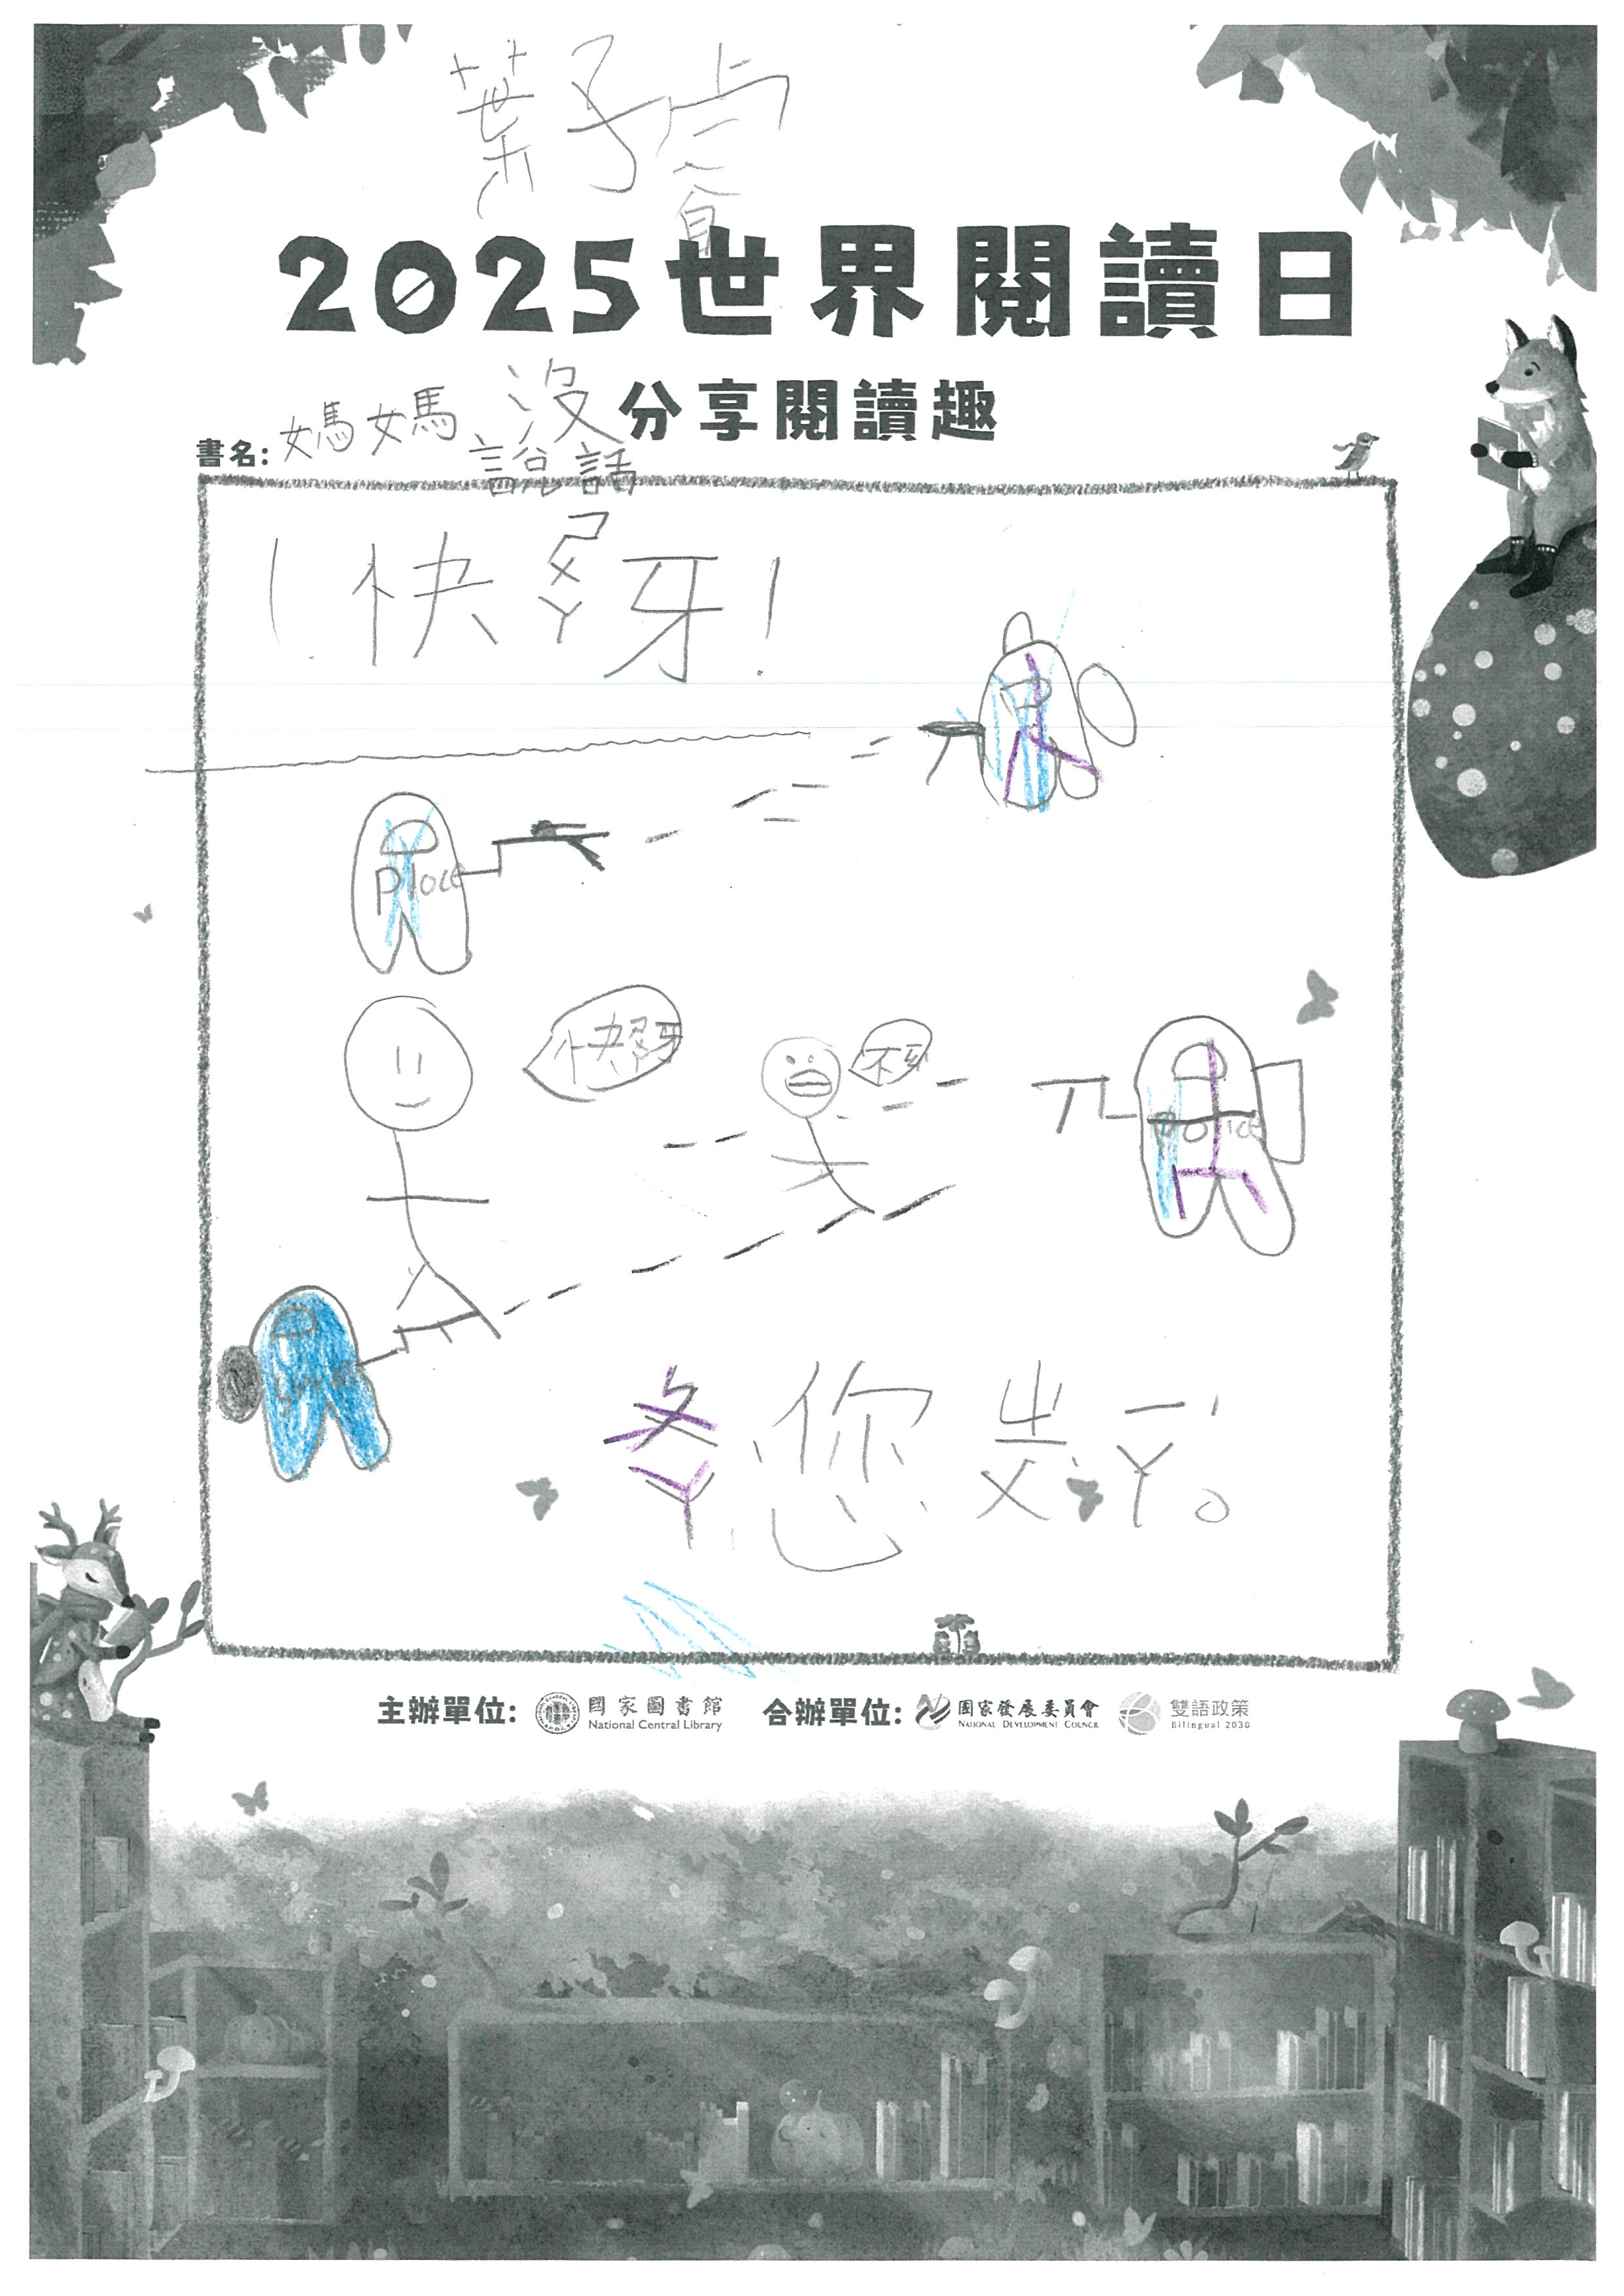 葉子睿
2025世界閱讀日
分享閱讀趣
書名: 媽媽沒
說話
快ㄕㄨㄚ牙!
快ㄕㄨㄚ牙
不牙
Police
您
主辦單位: 國家圖書館 National Central Library 合辦單位: 國家發展委員會 NATIONAL DEVELOPMENT COUNCIL 雙語政策 Bilingual 2030